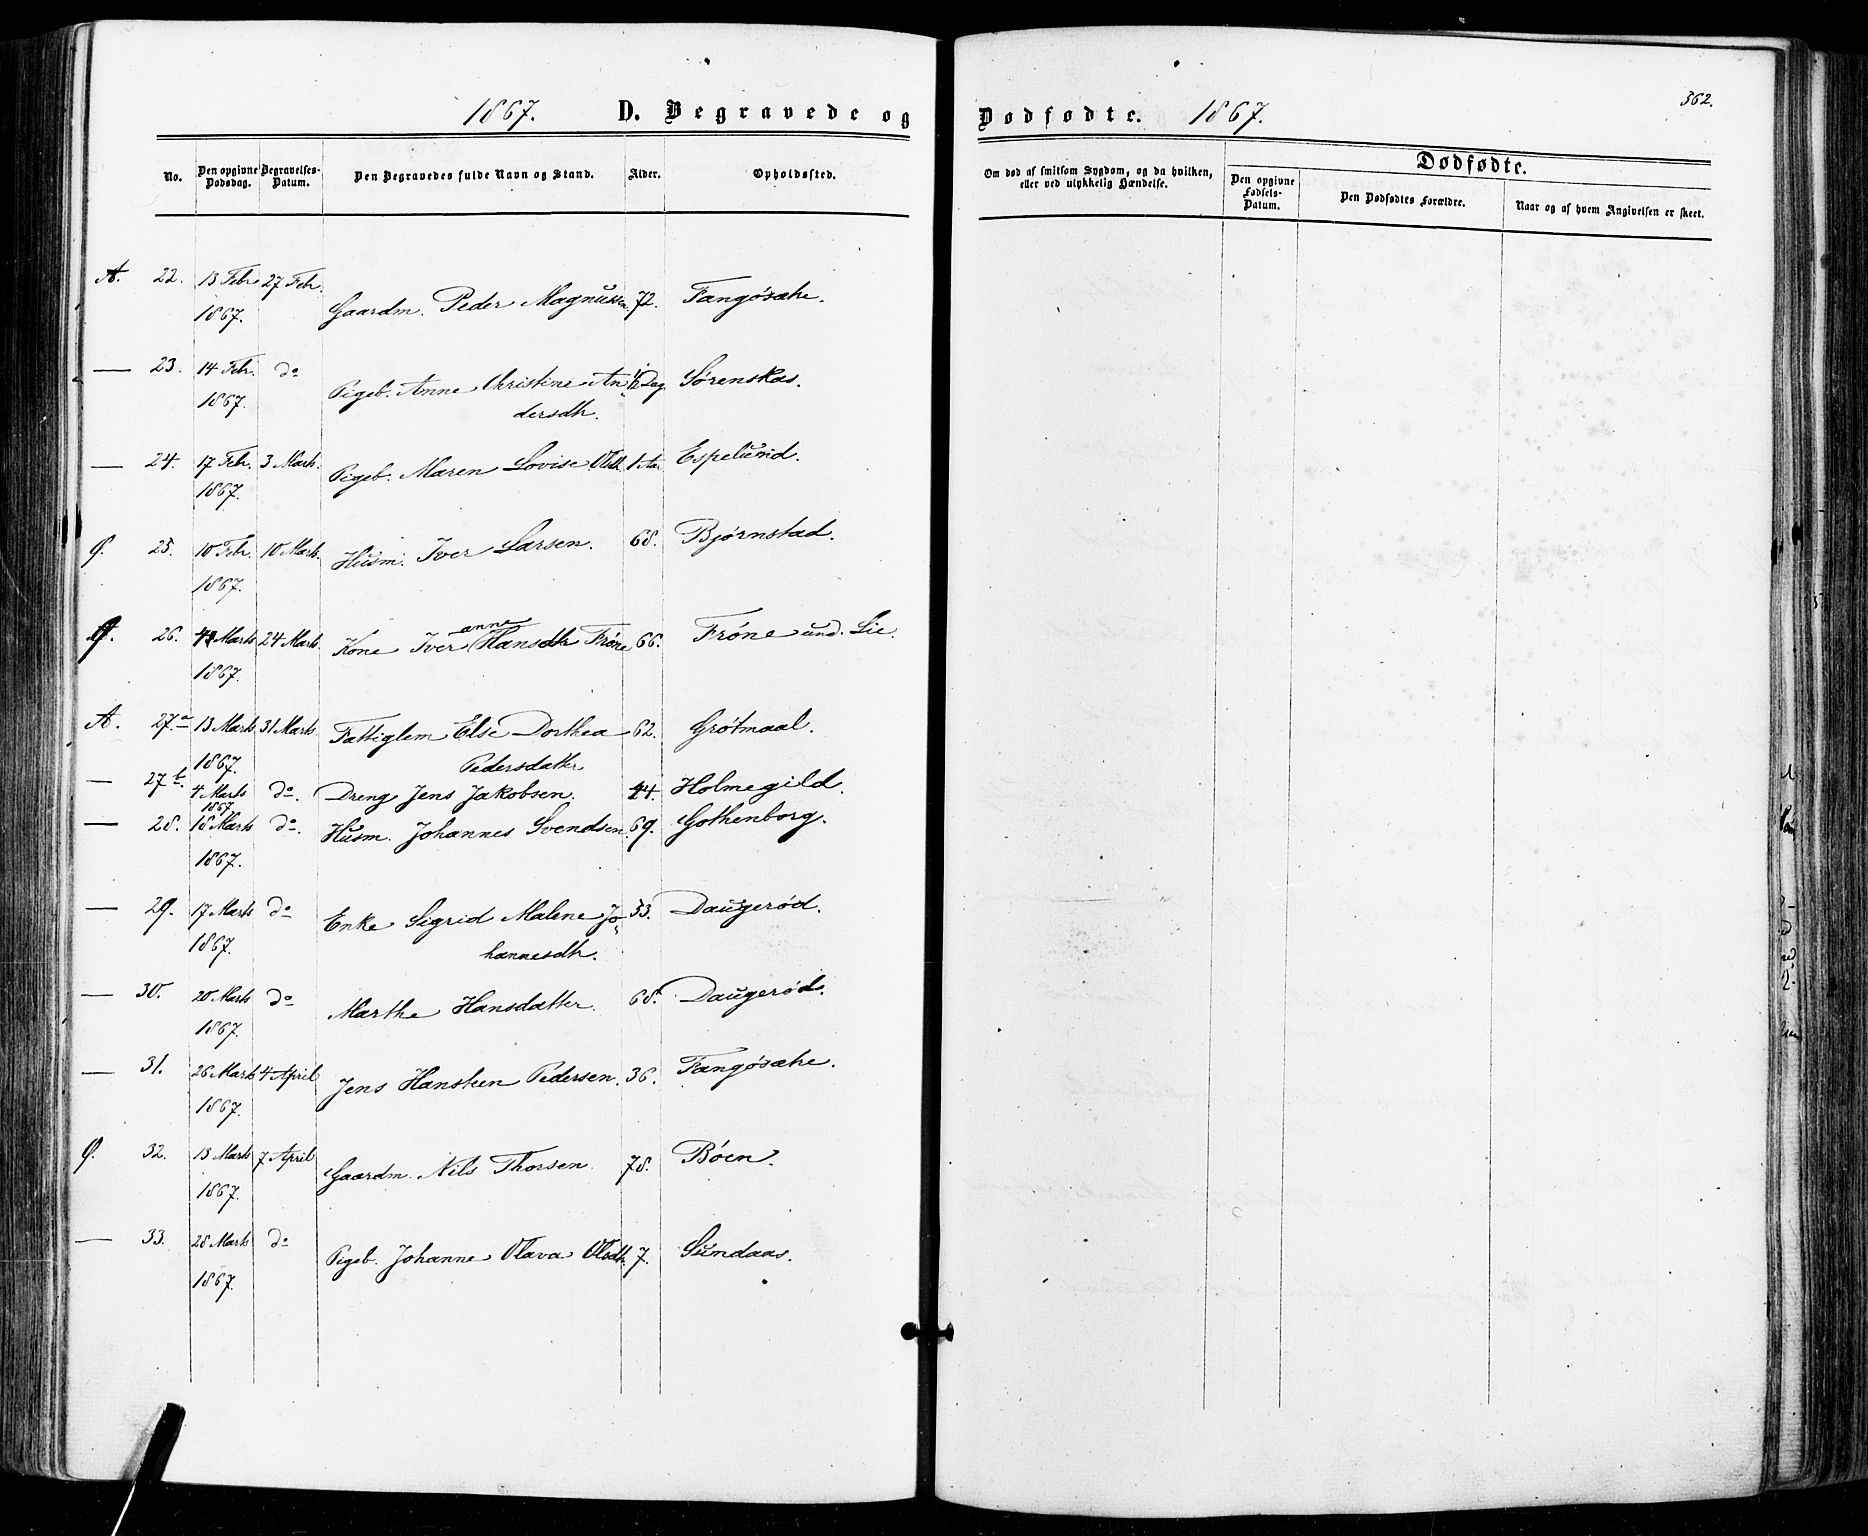 1867. D. Begravede og
Dødfødte. 1867.
362.
No. Den opgivne Dødsdag. Begravelses-Datum. Den Begravedes fulde Navn og Stand. Alder. Opholdssted.
Om død af smitsom Sygdom, og da hvilken, eller ved ulykkelig Hændelse.
Dødfødte.
Den opgivne Fødsels-Datum. Den Dødfødtes Forældre. Naar og af hvem Angivelsen er skeet.
A. 22. 13 Febr 27 Febr. Gaardm. Peder Magnussen 72. Tangøsæhe.
1867.
— 23. 14 Febr. do Pigeb. Anne Christine An- Dag Sørenskas.
1867. dersdtr.
— 24. 17 Febr. 3 Marts. Pigeb. Maren Lovise Olsdt 1 Aar Espelund.
1867.
Q. 25. 10 Febr. 10 Marts. Husm. Iver Larsen. 68. Bjørnstad.
1867.
Q. 26. Marts 24 Marts. Kone Iver anne Hansdtr Frøne 66. Frøne und. Lie.
1867.
A. 27.a 13 Marts 31 Marts. Fattiglem Else Dorthea 62. Grøtmaal.
1867. Pedersdatter
— 27b. 4 Marts do. Dreng Jens Jakobsen. 14. Holmegild.
1867.
— 28. 18 Marts do. Husm. Johannes Svendsen. 69. Gothenborg.
1867.
— 29. 17 Marts do Enke Sigrid Malene Jo- 53. Daugerød.
1867. hannesdtr.
— 30. 20 Marts do Marthe Hansdatter. 68. Daugerød.
1867.
— 31. 26 Marts 4 April Jens Hansteen Pedersen. 36. Tangøsæhe.
1867.
Q. 32. 13 Marts 7 April Gaardm. Nils Thorsen. 78. Bøen.
1867.
— 33. 28 Marts do Pigeb. Johanne Olava Olsdtr. 7. Sundaas.
1867.